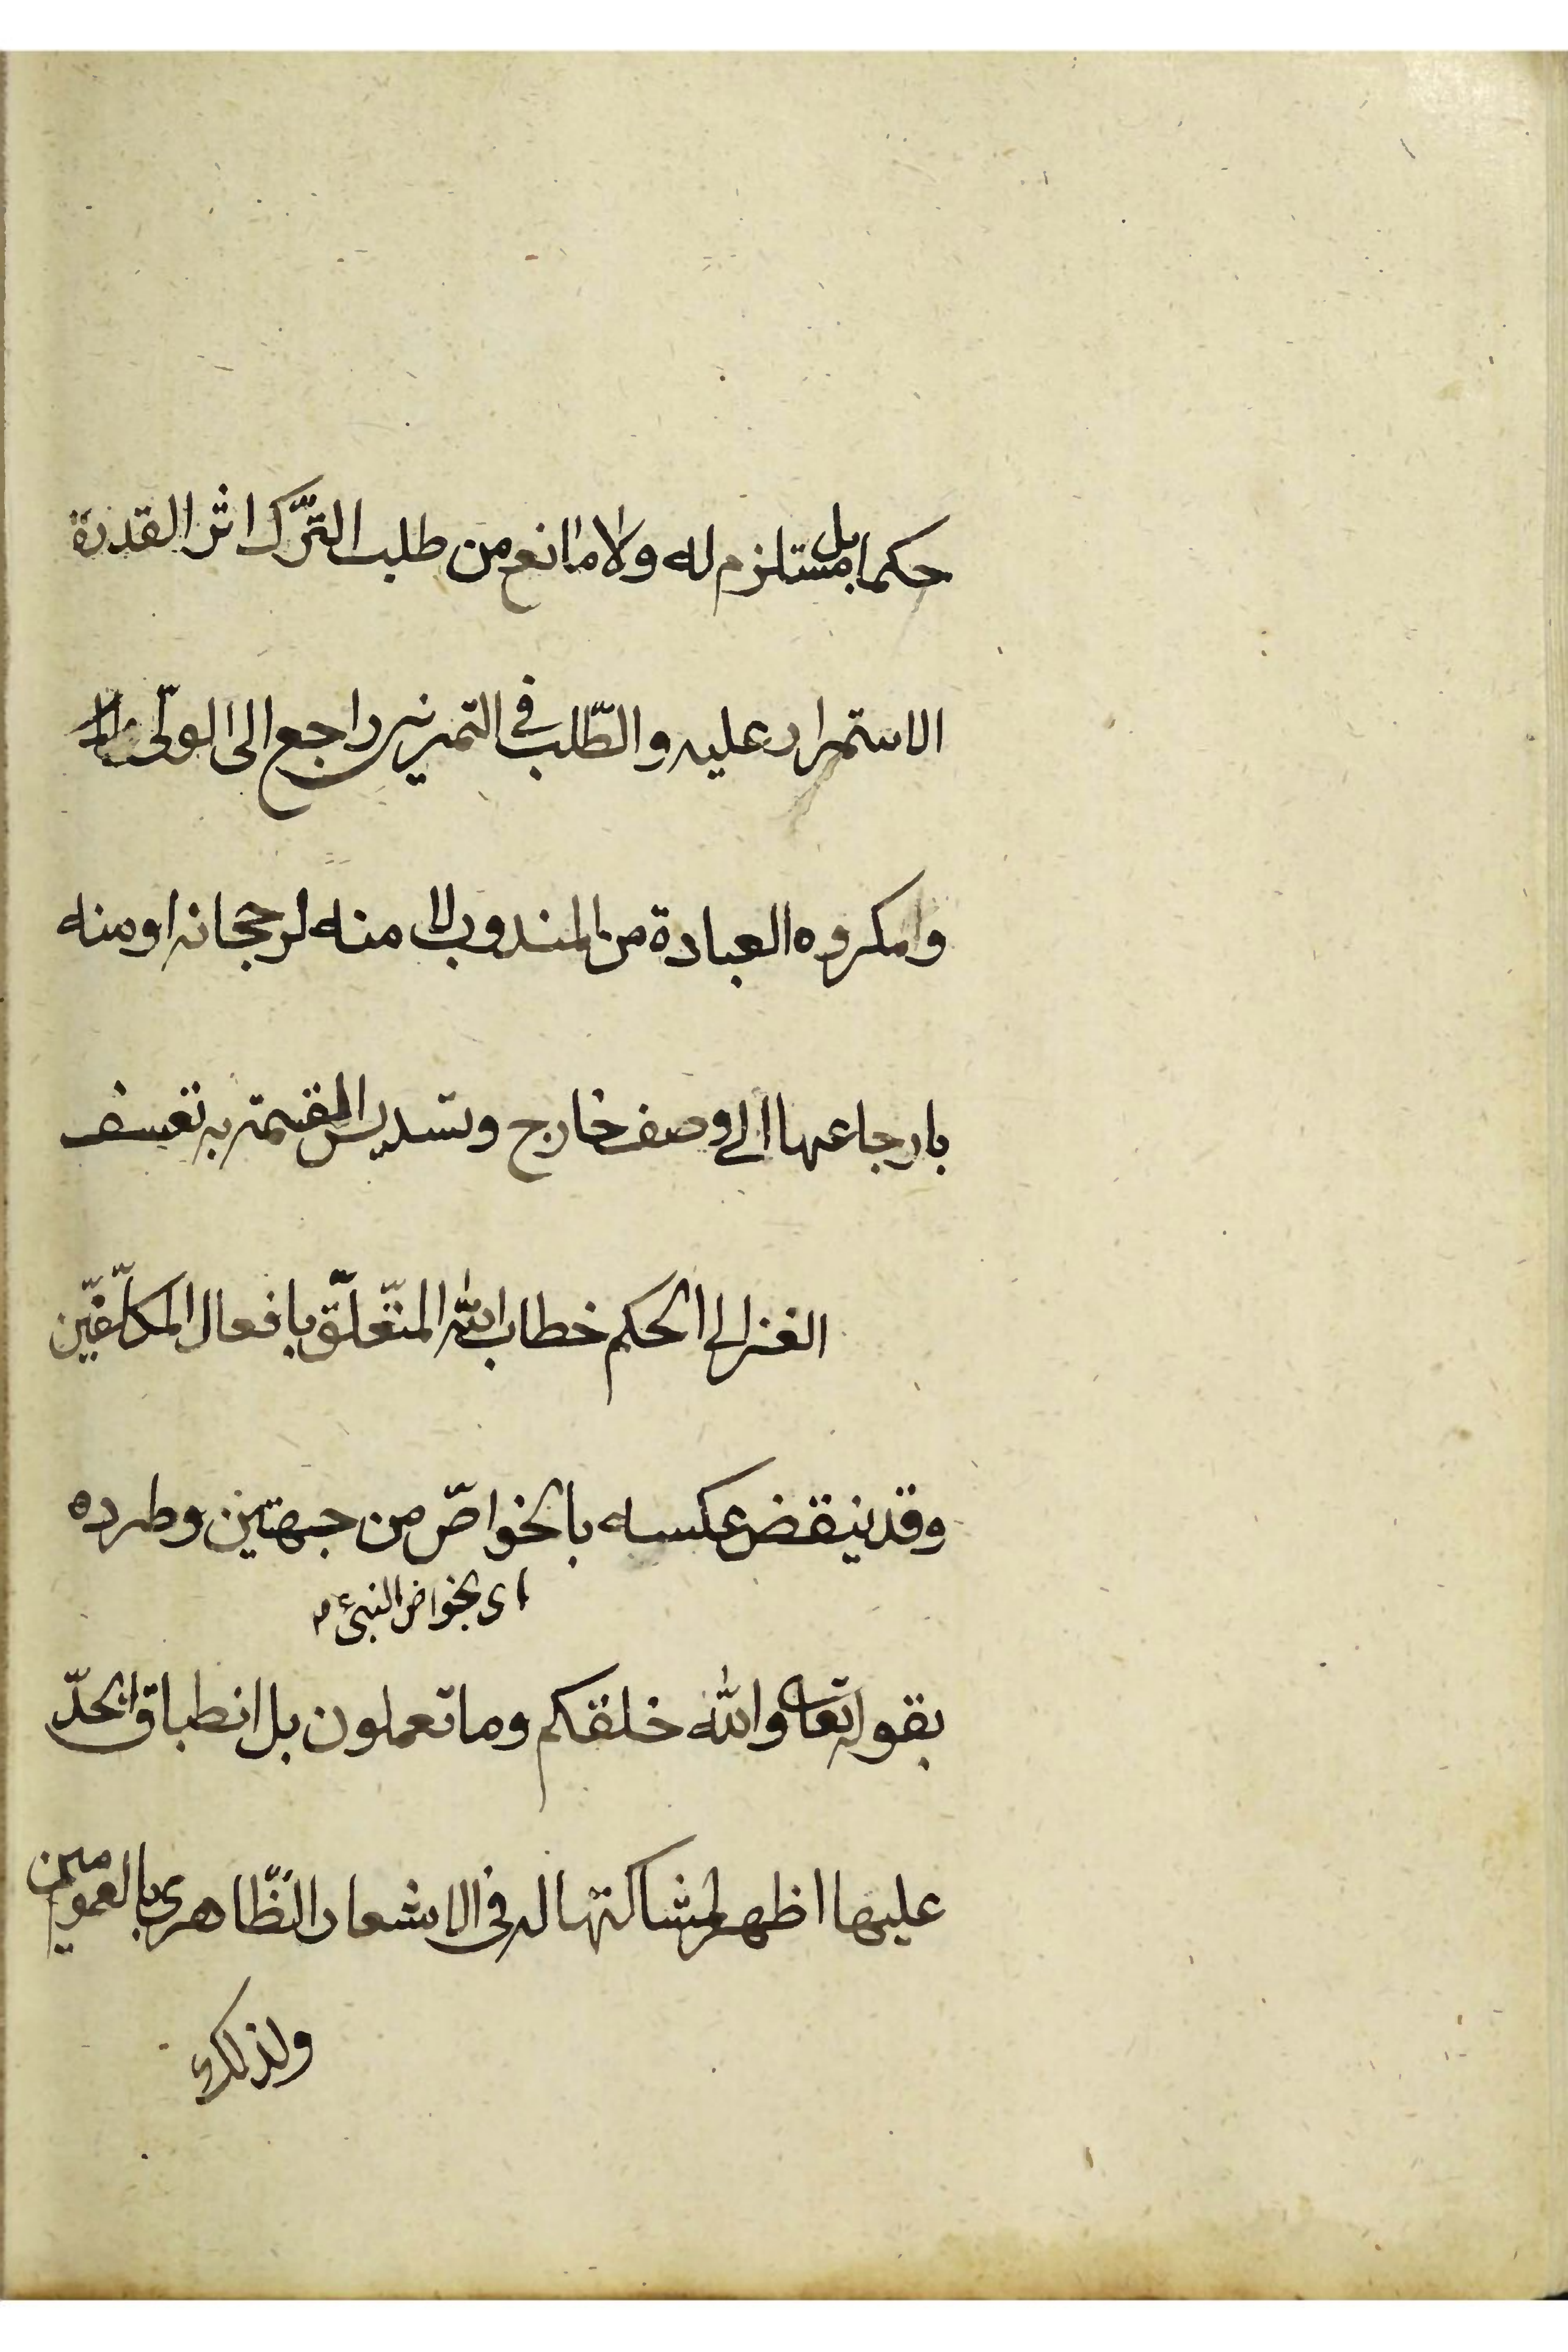 حكما بل مستلزم له ولا مانع من طلب التّرك اثر القدرة
الاستمرار عليه والطّلب في التمرين راجع الى الولّى
وامكروه العبادة من المندوب لا منه لرجحانه او منه
بارجاعها الى وصف خارج وتسديس القسمة به تعسف
الغزالي الحكم خطاب الله المتعلّق بافعال المكلّفين
وقد ينقض عكسه بالخواصّ من جهتين وطرده
اى بخواص النبىء م
بقوله تعا والله خلقكم وما تعملون بل انطباق الحدّ
عليها اظهر لمشاكلتها له في الاشعار الظّاهرى بالعمومين
ولذلك